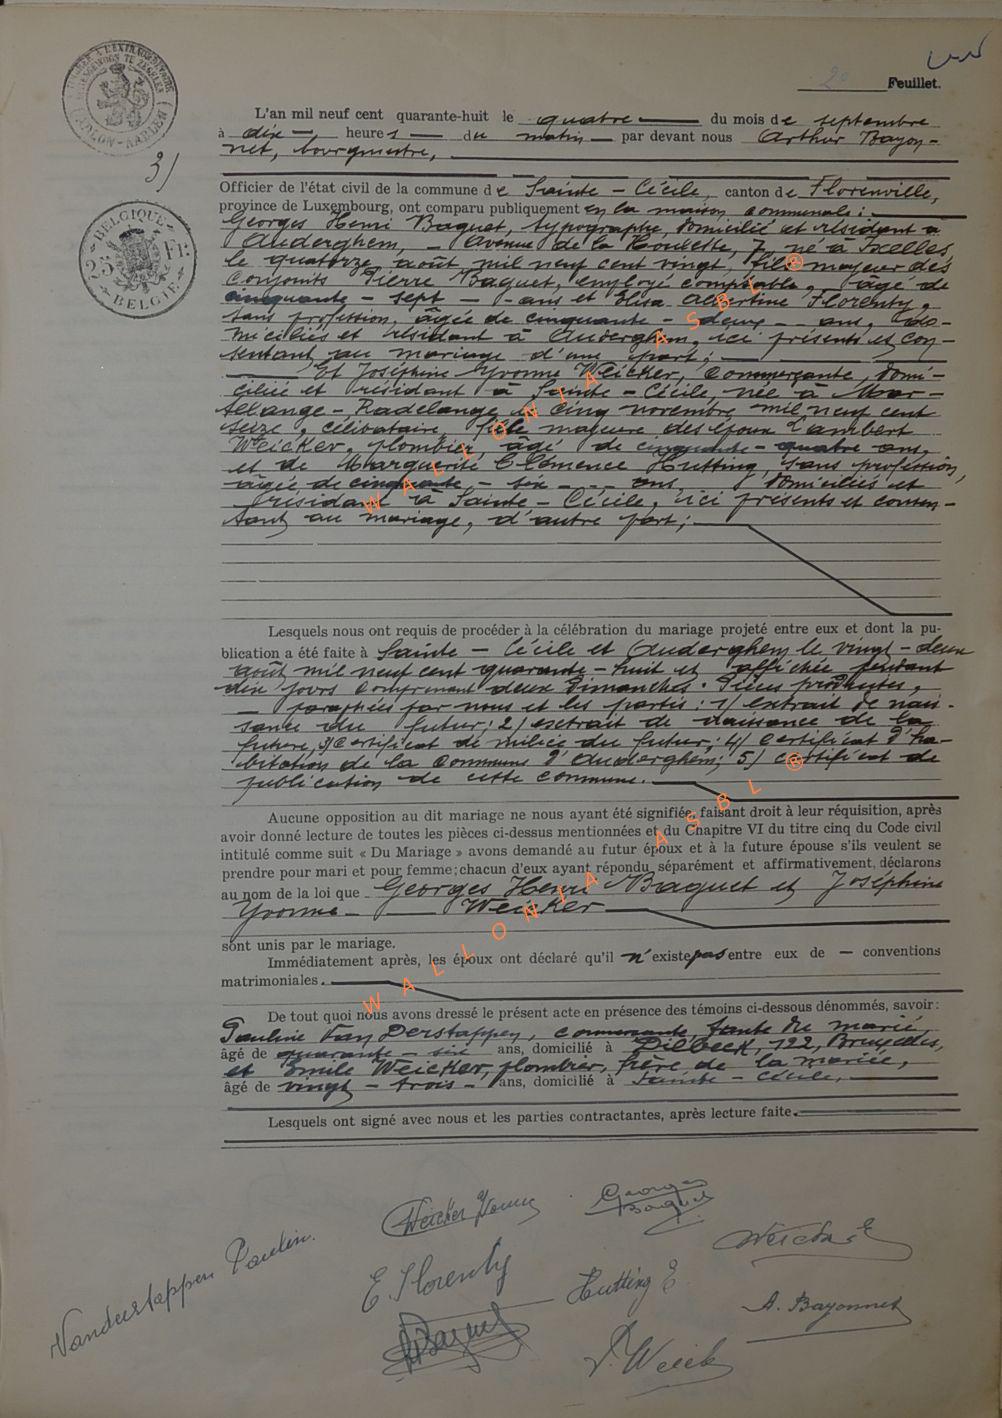 20 Feuillet.
3/
BELGIQUE
25 Fr.
BELGIE
L'an mil neuf cent quarante-huit le quatre du mois de septembre
à dix heures du matin par devant nous Arthur Bayon-
net, bourgmestre,
Officier de l'état civil de la commune de Sainte - Cécile, canton de Florenville,
province de Luxembourg, ont comparu publiquement en la maison communale :
Georges Henri Baguet, typographe, domicilié et résidant à
Auderghem, - Avenue de la Houlette, 7, né à Ixelles
le quatorze août mil neuf cent vingt, fils majeur des
conjoints Pierre Baguet, employé comptable, âgé de
cinquante - sept - ans et Elisa Albertine Florenty,
sans profession, âgée de cinquante - deux - ans, do-
miciliés et résidant à Auderghem, ici présents et con-
sentant au mariage d'une part ;
Et Joséphine Yvonne Weicker, commerçante, domi-
ciliée et résidant à Sainte - Cécile, née à Mar-
telange - Radelange le cinq novembre mil neuf cent
seize, célibataire, fille majeure des époux Lambert
Weicker, plombier, âgé de cinquante - quatre ans,
et de Marguerite Clémence Hutting, sans profession,
âgée de cinquante - six - ans domiciliés et
résidant à Sainte - Cécile, ici présents et consen-
tant au mariage, d'autre part ;
Lesquels nous ont requis de procéder à la célébration du mariage projeté entre eux et dont la pu-
blication a été faite à Sainte - Cécile et Auderghem le vingt - deux
août mil neuf cent quarante - huit et affichée pendant
dix jours comprenant deux dimanches. Pièces produites,
paraphées par nous et les parties : 1/ extrait de nais-
sance du futur ; 2/ extrait de naissance de la
future, 3/ certificat de milice du futur ; 4/ certificat d'ha-
bitation de la commune d'Auderghem ; 5/ certificat de
publication de cette commune.
Aucune opposition au dit mariage ne nous ayant été signifiée, faisant droit à leur réquisition, après
avoir donné lecture de toutes les pièces ci-dessus mentionnées et du Chapitre VI du titre cinq du Code civil
intitulé comme suit « Du Mariage » avons demandé au futur époux et à la future épouse s'ils veulent se
prendre pour mari et pour femme ; chacun d'eux ayant répondu séparément et affirmativement, déclarons
au nom de la loi que Georges Henri Baguet et Joséphine
Yvonne Weicker
sont unis par le mariage.
Immédiatement après, les époux ont déclaré qu'il n'existe pas entre eux de — conventions
matrimoniales.
De tout quoi nous avons dressé le présent acte en présence des témoins ci-dessous dénommés, savoir :
Pauline Van Derstappen, commerçante, tante du marié,
âgé de quarante - six ans, domicilié à Dilbeek, 122, Bruxelles,
et Emile Weicker, plombier, frère de la mariée,
âgé de vingt - trois - ans, domicilié à Sainte - Cécile,
Lesquels ont signé avec nous et les parties contractantes, après lecture faite.
Weicker Yvonne
Georges Baguet
Weicker E
Vanderstappen Paulin.
E. Florenty
Hutting C
A. Bayonnet
Baguet
L. Weick
WALLONIA ASBL ®
WALLONIA ASBL ®